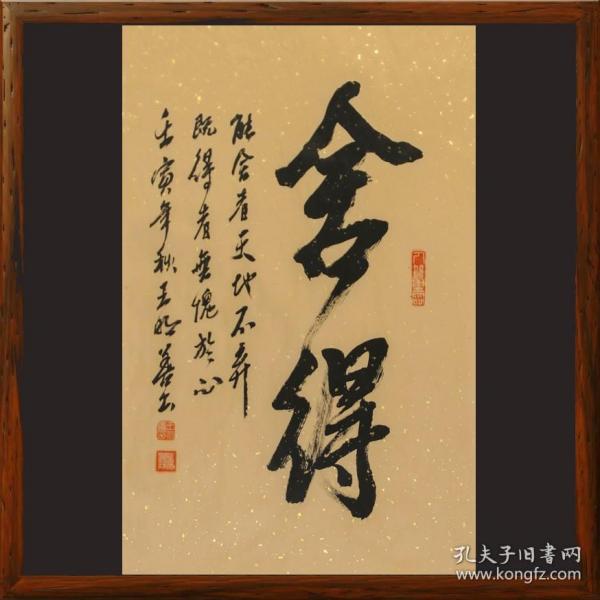 舍得
能舍者天地不弃
既得者無愧於心
壬寅年秋王 善书
孔夫子旧書网
www.kongfz.com